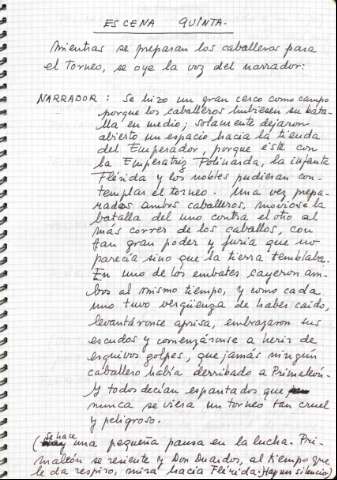 ESCENA QUINTA.
Mientras se preparan los caballeros para
el Torneo, se oye la voz del narrador:
NARRADOR: Se hizo un gran cerco como campo
porque los caballeros hubiesen su bata-
lla en medio; solamente dejaron
abierto un espacio hacia la tienda
del Emperador, porque éste con
la Emperatriz Polinarda, la infanta
Flérida y los nobles pudieran con-
templar el torneo. Una vez prepa-
rados ambos caballeros, movióse la
batalla del uno contra el otro al
más correr de los caballos, con
tan gran poder y furia que no
parecía sino que la tierra temblaba.
En uno de los embates cayeron am-
bos al mismo tiempo, y como cada
uno tuvo vergüenza de haber caído,
levantáronse aprisa, embrazaron sus
escudos y comenzáronse a herir de
esquivos golpes, que jamás ningún
caballero había derribado a Primaleón.
Y todos decían espantados que
nunca se viera un torneo tan cruel
y peligroso.
(Se hace una pequeña pausa en la lucha. Pri-
maleón se resiente y Don Duardos, al tiempo que
le da respiro, mira hacia Flérida. Hay un silencio)